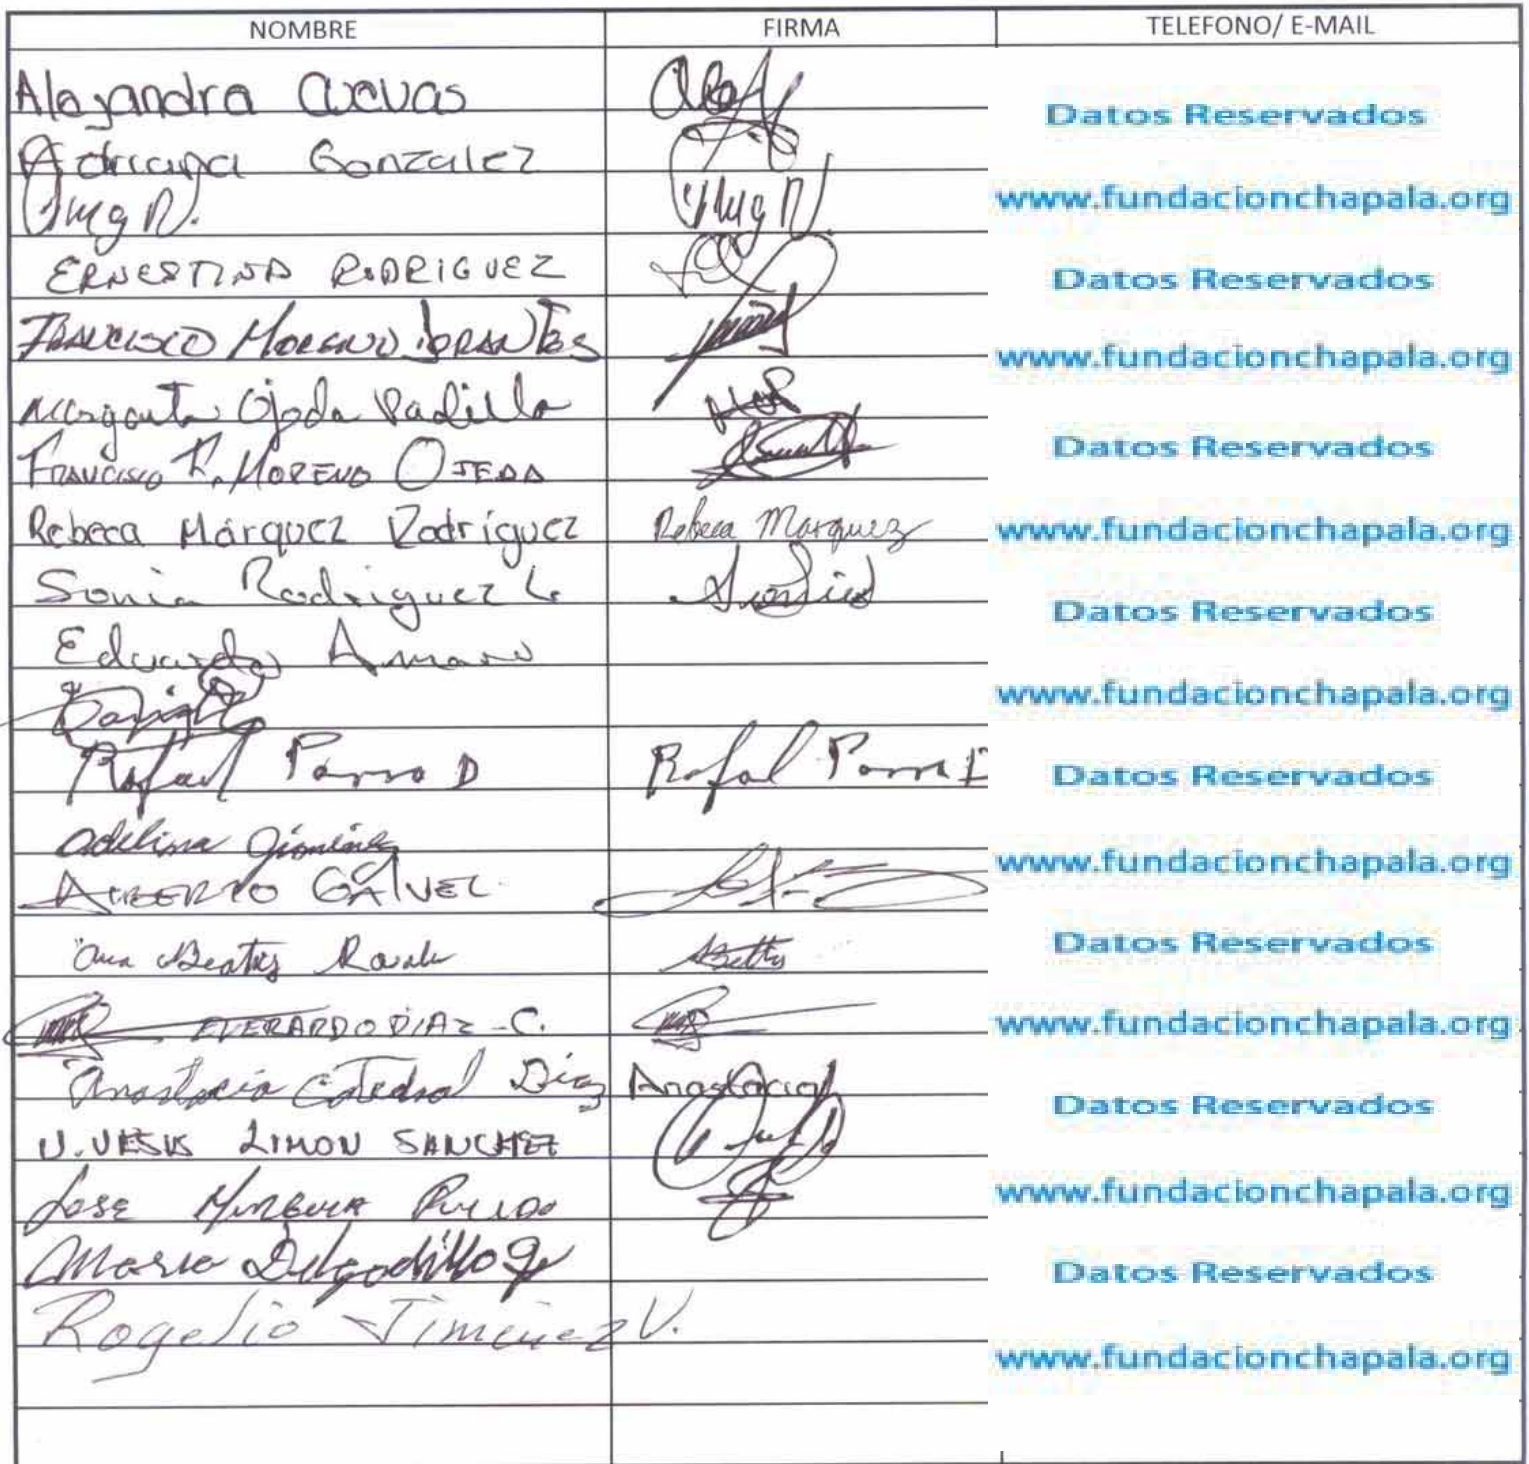 NOMBRE FIRMA TELEFONO/ E-MAIL
Alejandra Cuevas
Datos Reservados
Adriana Gonzalez
www.fundacionchapala.org
ERNESTINA RODRIGUEZ
Datos Reservados
FRANCISCO MORENO
www.fundacionchapala.org
Margarita Ojeda Padilla
Datos Reservados
FRANCISCO MORENO OJEDA
Rebeca Márquez Rodríguez Rebeca Marquez
www.fundacionchapala.org
Sonia Rodriguez L.
Datos Reservados
Eduardo Amaro
www.fundacionchapala.org
Rafael Parra D Rafael Parra D
Datos Reservados
Adelina Giménez
www.fundacionchapala.org
ALBERTO GALVEZ
Ana Beatriz Betty
Datos Reservados
EVERARDO DIAZ - C.
www.fundacionchapala.org
Anastacia Catedral Diaz Anastacia
Datos Reservados
LIMON SANCHEZ
www.fundacionchapala.org
Jose PULIDO
Mario Delgadillo
Datos Reservados
Rogelio Jimenez V.
www.fundacionchapala.org